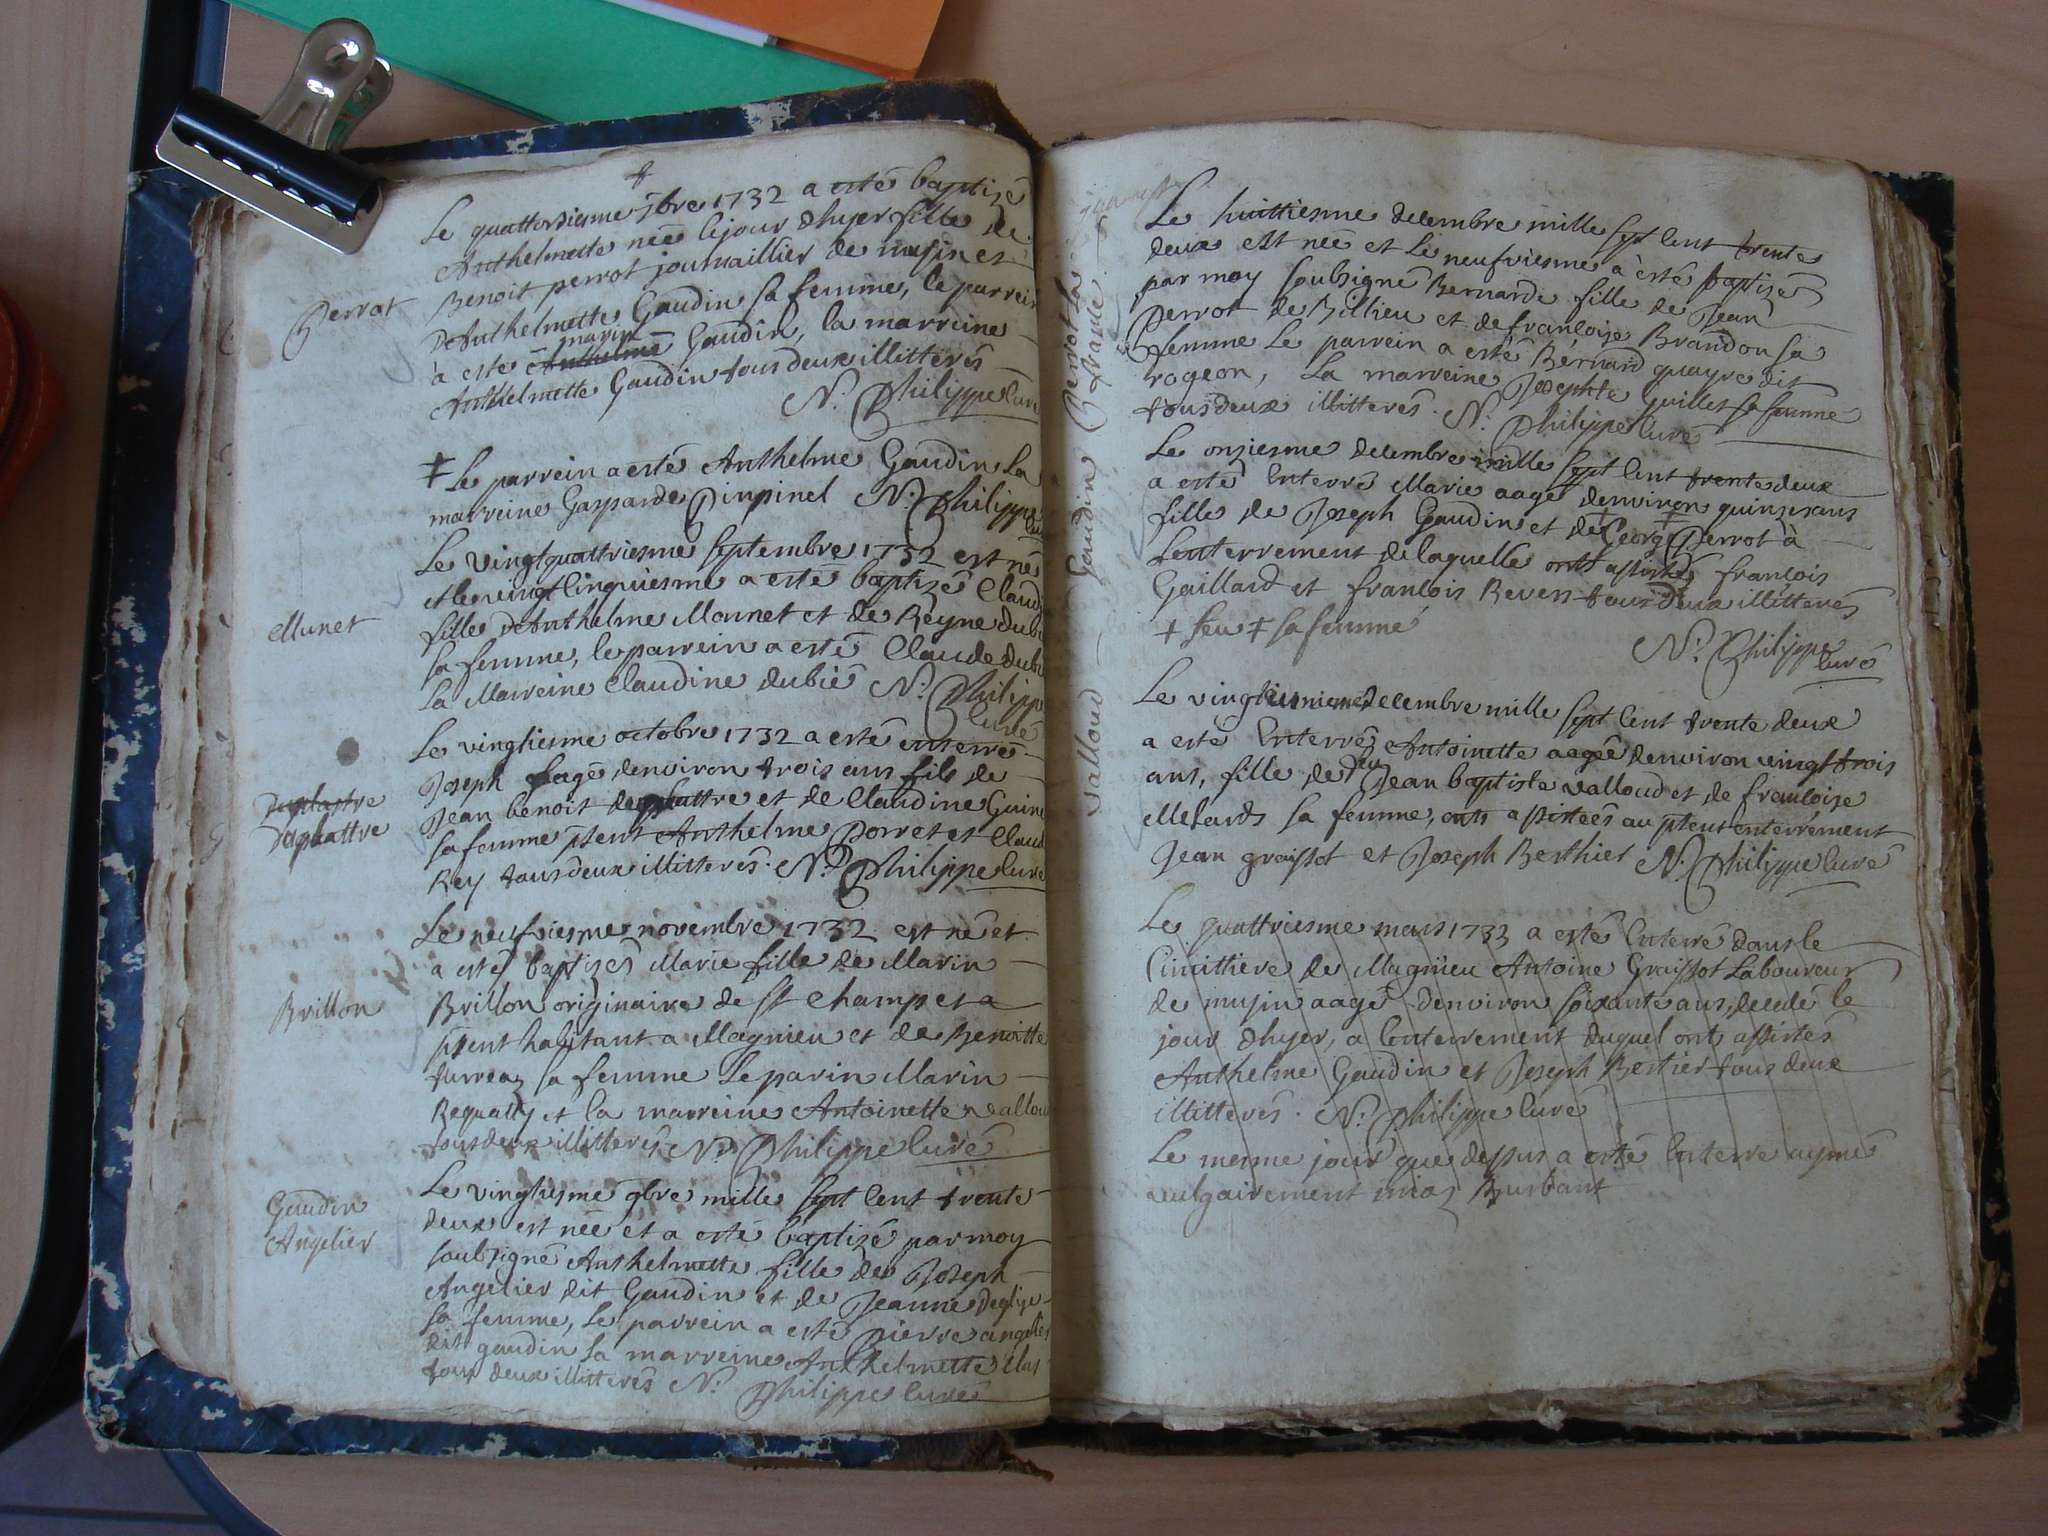 Le quattorsiesme 7bre 1732 a esté baptizé
Anthelmette née le jour d'hyer fille de
Benoit perrot journaillier de musin et
Perrot
D'Anthelmette Gaudin sa femme, le parrein
marin
à esté Anthelme Gaudin, la marreine
Anthelmette Gaudin tous deux illitterés
N. Philippe curé
‡ Le parrein a esté Anthelme Gaudin La
marreine Gasparde Pinpinel N. Philippe
curé
Le vingtquattriesme septembre 1732 est né
et le vingt cinquiesme a esté baptizé Claud
Munet
fille d'Anthelme Monnet et de Reyne Dubi
sa femme, le parrein a esté Claude Dubi
La Marreine Claudine Dubié N. Philippe
curé
Le vingtiesme octobre 1732 a esté enterré
Joseph aagé d'environ trois ans fils de
Duplastre
Duplattre
Jean benoit duplattre et de Claudine Guine
sa femme psent Anthelme Dorret et Claud
Rey tous deux illitterés. N. Philippe curé
Le neufviesme novembre 1732 est né et
a esté baptizé Marie fille de Marin
Brillon
Brillon originaire de St Champ et a
psent habitant a Magnieu et de Benoitte
sa femme Le parin Marin
et la marreine Antoinette vallou
tous deux illitterés N. Philippe curé
Le vingtiesme 9bre mille sept cent trente
Gaudin
Angelier
deux est née et a esté baptizé par moy
soubsigné Anthelmette fille de Joseph
Angelier dit Gaudin et de Jeanne
sa femme, Le parrein a esté pierre angelier
dit gaudin la marreine Anthelmette
tous deux illitterés N. Philippe curé
Perrot
Gaudin
valloud
Le huittiesme decembre mille sept cent trente
deux est née et le neufviesme à esté baptizé
par moy soubsigné Bernarde fille de Jean
Perrot de Billieu et de francoise Brandon sa
femme Le parrein a esté Bernard quayre dit
rogeon, La marreine Josephte Guillet sa femme
tous deux illitterés. N. Philippe curé
Le onziesme decembre mille sept cent trente deux
a esté Enterré Marie aagé d'environ quinze ans
fille de Joseph Gaudin et de ‡ George ‡ Perrot à
Lenterrement de laquelle ont assistés francois
Gaillard et francois Revers tous deux illitterés
‡ feu ‡ sa femme
N. Philippe
curé
Le vingt decembre mille sept cent trente deux
a esté Enterré Antoinette aagée d'environ vingt trois
ans, fille de feu Jean baptiste valloud et de francoise
Mesards sa femme, ont assistées au psent enterrement
Jean graissot et Joseph Berthiet N. Philippe curé
Le quattriesme mars 1733 a esté Enterré dans le
Cimittiere de Magnieu Antoine Graissot Laboureur
de musin aagé d'environ soixante ans, decedé le
jour d'hyer, a Lenterrement duquel ont assistés
Anthelme Gaudin et Joseph Bertier tous deux
illitterés. N. Philippe curé
Le mesme jour que dessus a esté Enterré aymé
vulgairement